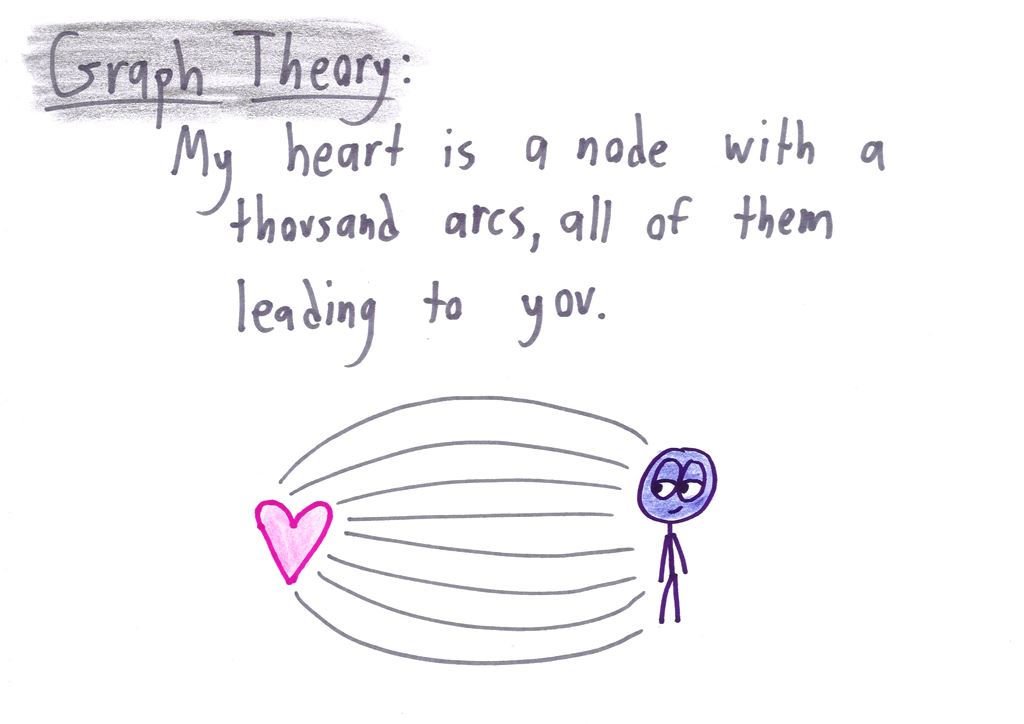 Graph Theory:
My heart is a node with a
thousand arcs, all of them
leading to you.